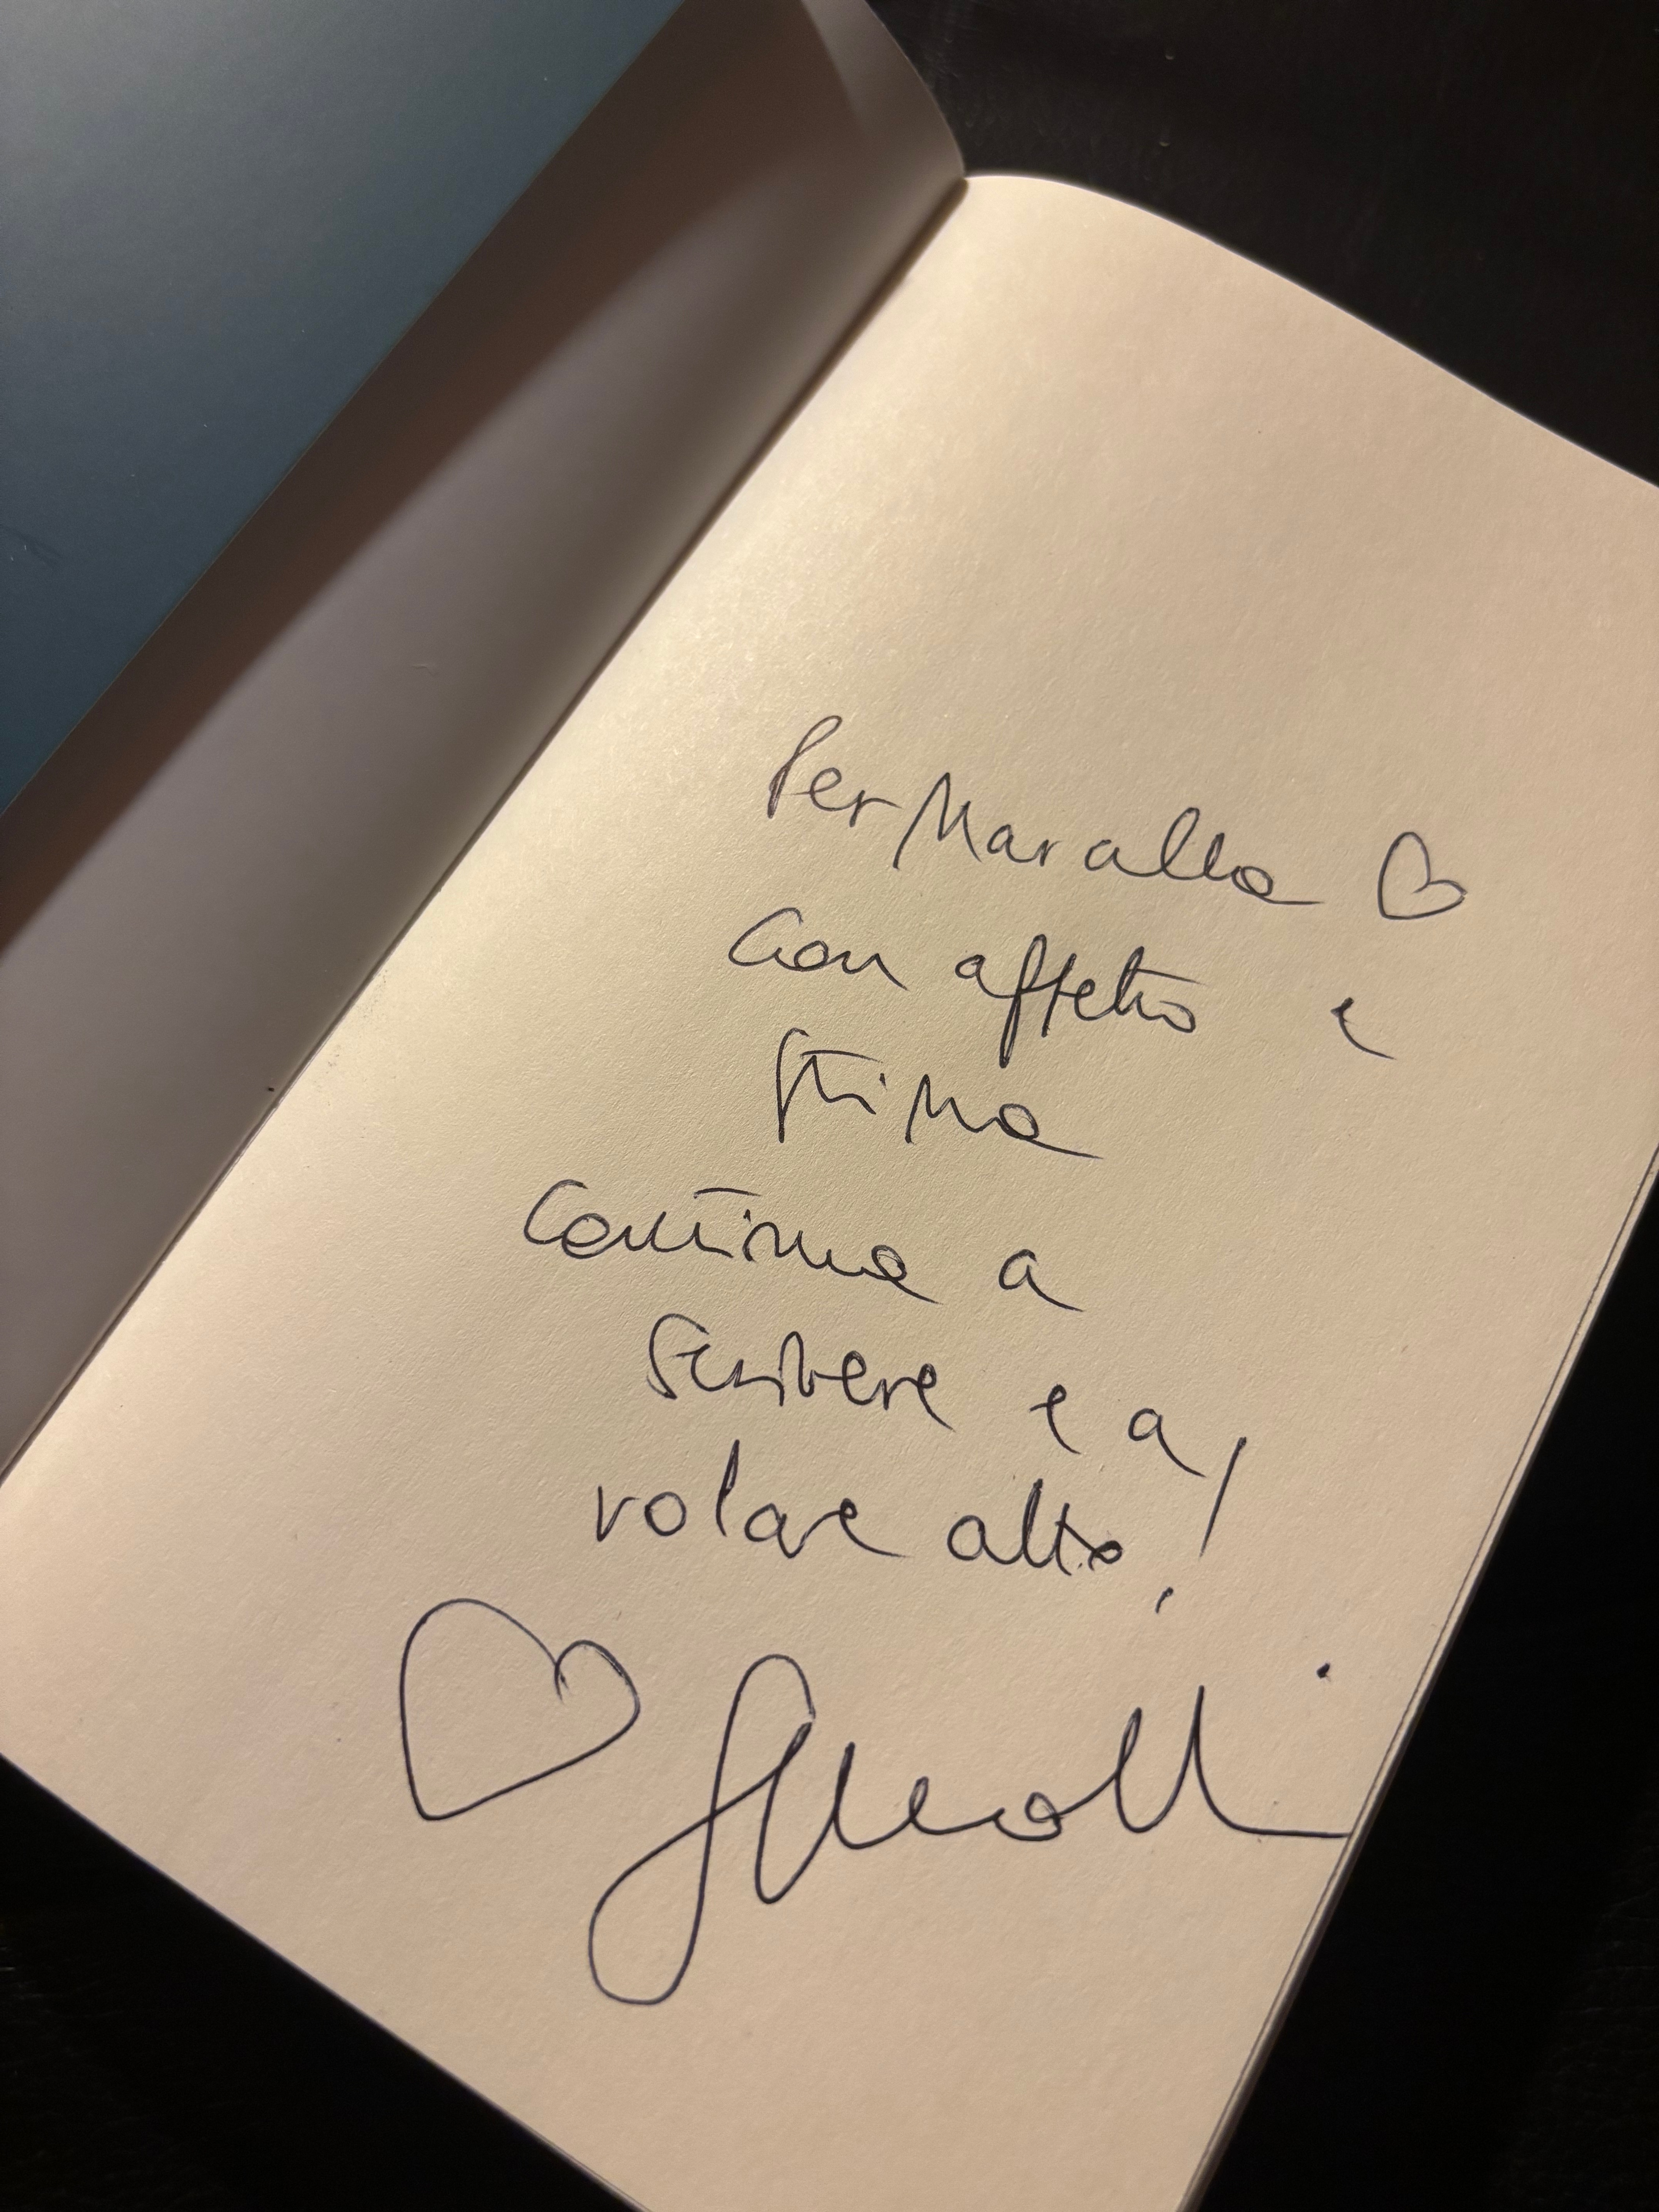 Per Maralla ♡
con affetto e
stima
Continua a
scrivere e a
volare alto!
♡